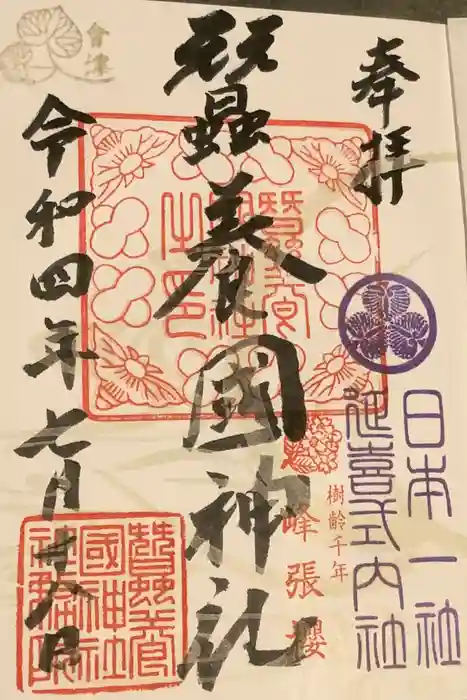 奉拝
日本一社
延喜式内社
樹齡千年
峰張櫻
蠶養國神社
蠶養
國神社
之印
會津
令和四年七月廿八日
蠶養
國神社
社務所印